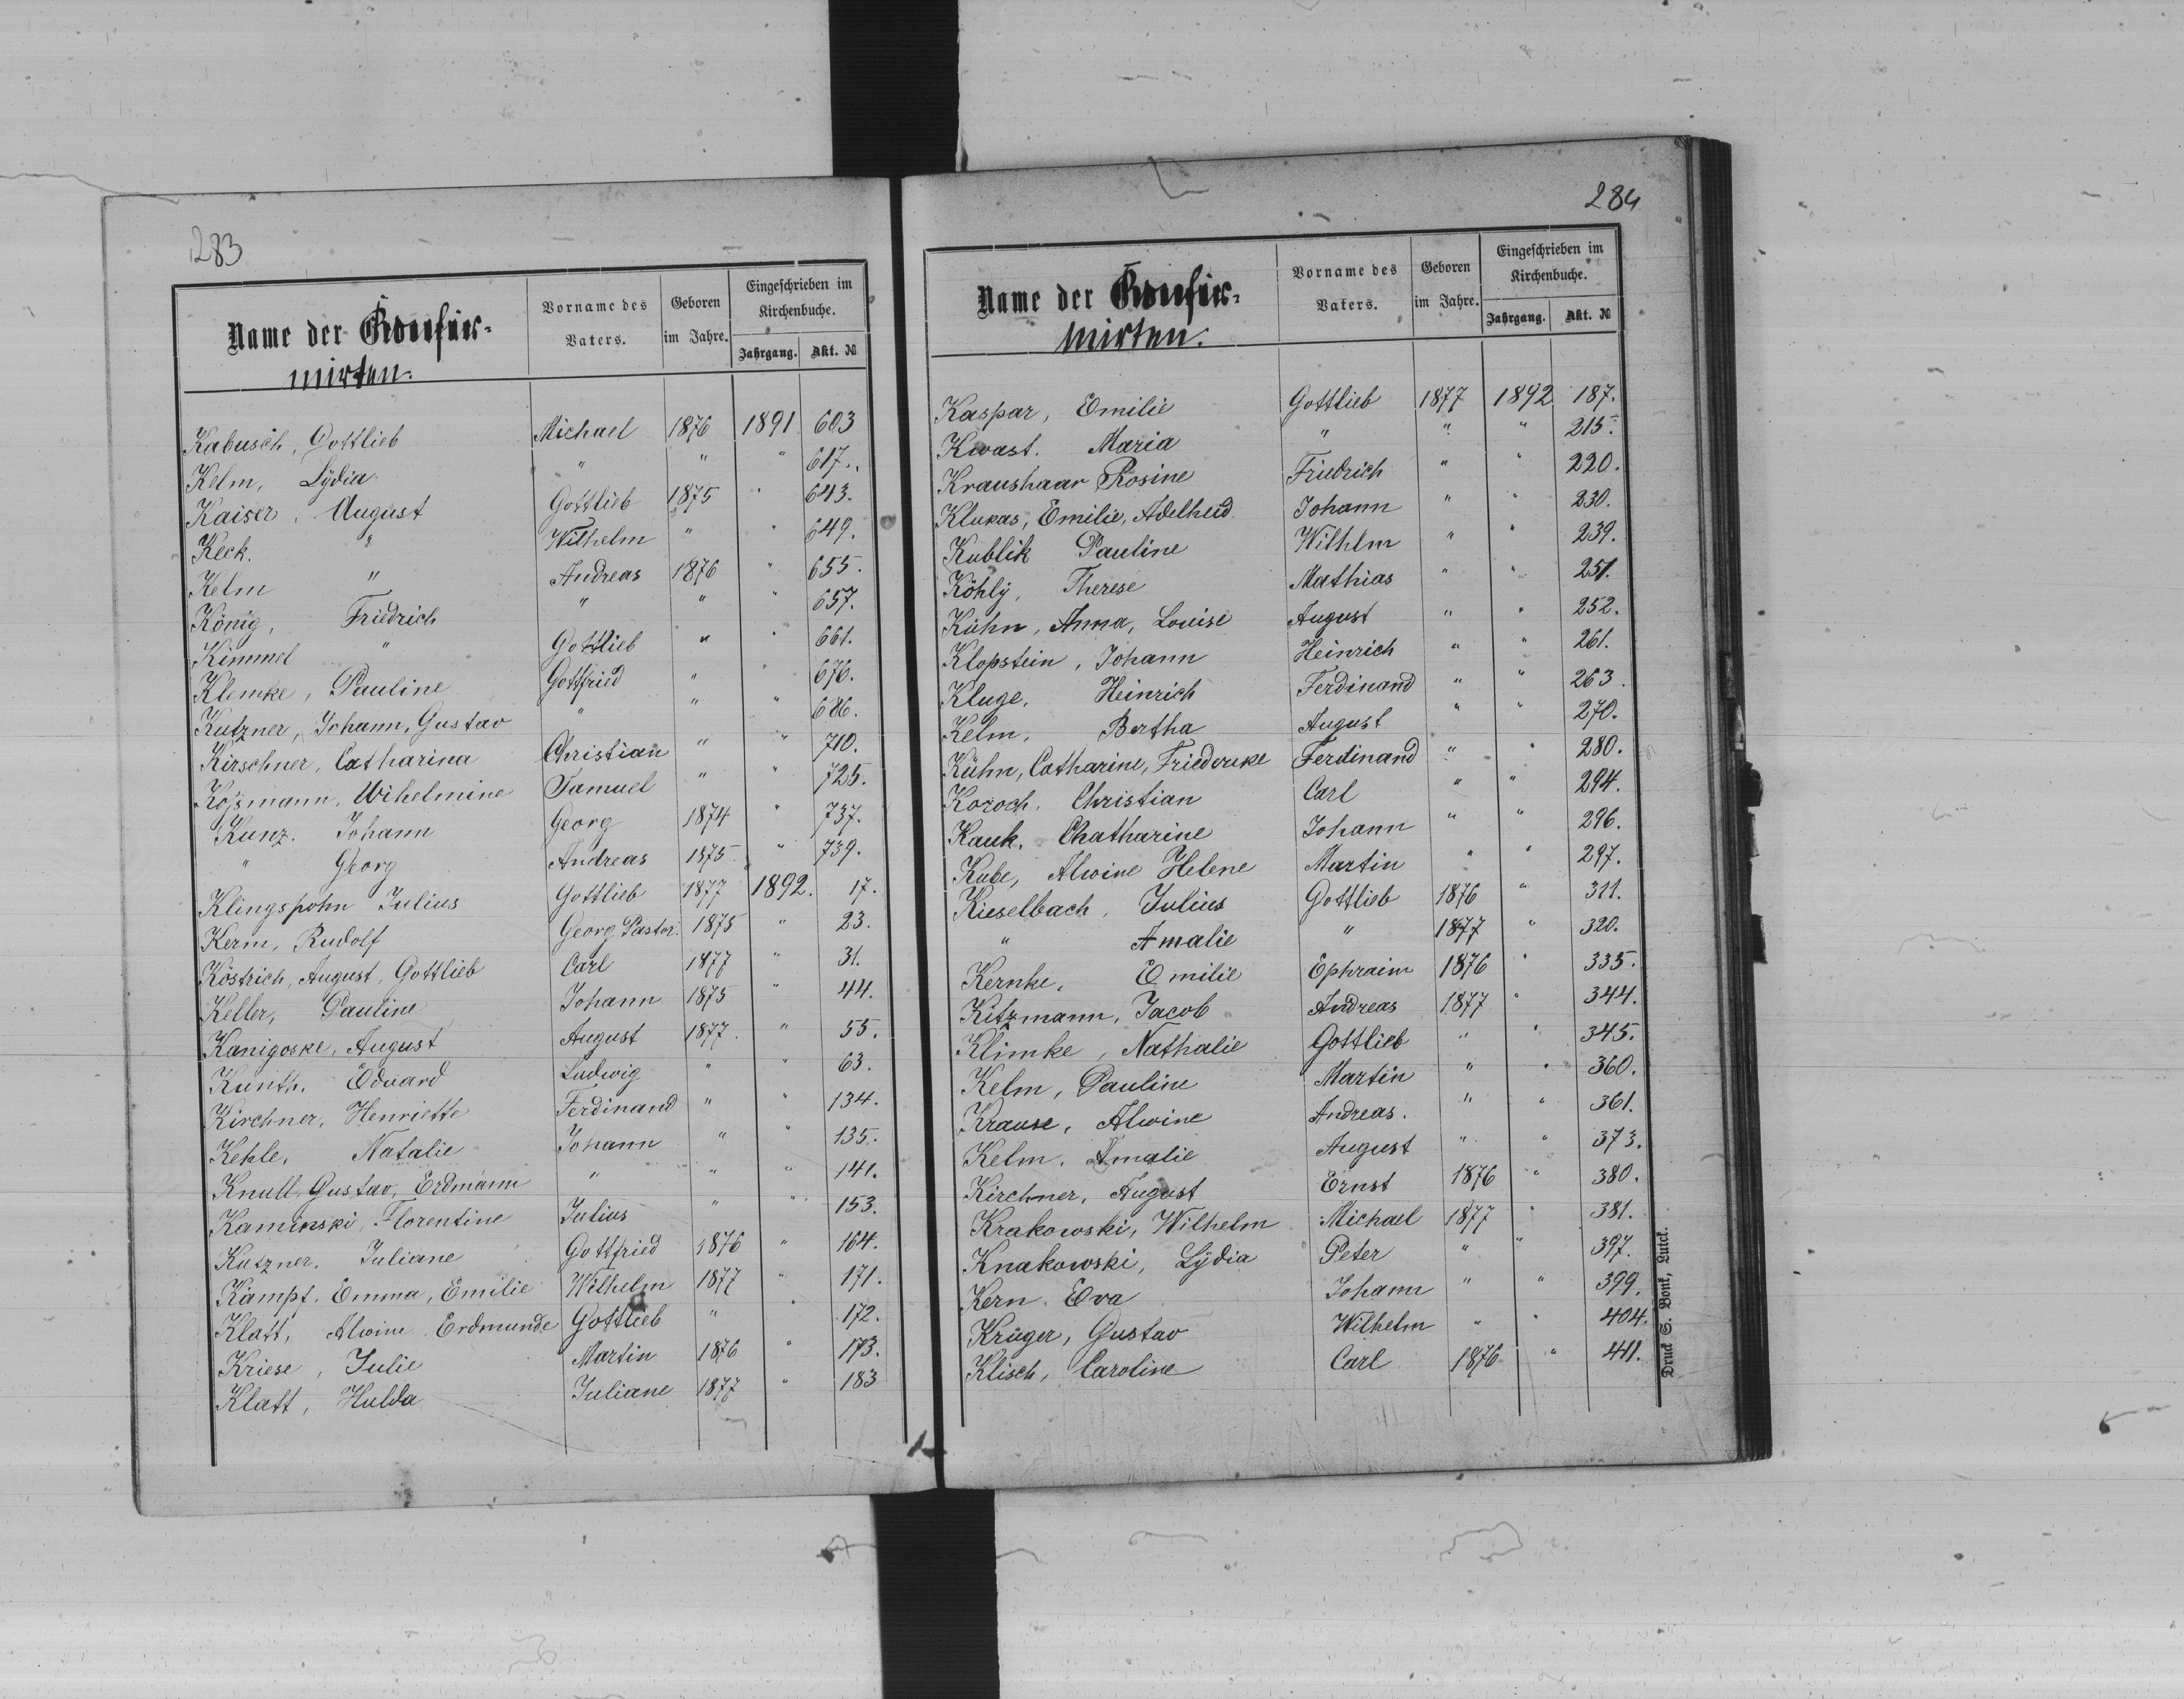 283
Name der Konfir-
mirten.
Vorname des
Vaters.
Geboren
im Jahre.
Eingeschrieben im
Kirchenbuche.
Jahrgang. Akt. №
Kabusch, Gottlieb Michael 1876 1891 603
Kelm, Lydia " " " 617.
Kaiser, August Gottlieb 1875 " 643.
Keck. " Wilhelm " " 649.
Kelm " Andreas 1876 " 655.
König, Friedrich " " " 657.
Kimmel " Gottlieb " " 661.
Klemke, Pauline Gottfried " " 676.
Kutzner, Johann, Gustav " " " 686.
Kirschner, Catharina Christian " " 710.
Koßmann, Wihelmine Samuel " " 725.
Kunz. Johann Georg 1874 " 737.
" Georg Andreas 1875 " 739.
Klingspohn Julius Gottlieb 1877 1892. 17.
Kerm, Rudolf Georg Pastor. 1875 " 23.
Köstrich, August, Gottlieb Carl 1877 " 31.
Keller, Pauline Johann 1875 " 44.
Kanigoske, August August 1877. " 55.
Kunth, Eduard Ludwig " " 63.
Kirchner, Henriette Ferdinand " " 134.
Kehle, Natalie Johann " " 135.
Knull, Gustav, Erdmann " " " 141.
Kaminski, Florentine Julius " " 153.
Kutzner, Juliane Gottfried 1876 " 164.
Kämpf. Emma, Emilie Wilhelm 1877 " 171.
Klatt, Alwine Erdmunde Gottlieb " " 172.
Kriese, Julie Martin 1876 " 173.
Klatt, Hulda Juliane 1877 " 183
284
Name der Konfir-
mirten.
Vorname des
Vaters.
Geboren
im Jahre.
Eingeschrieben im
Kirchenbuche.
Jahrgang. Akt. №
Kaspar, Emilie Gottlieb 1877 1892 187.
Kwast. Maria " " " 215.
Kraushaar Rosine Friedrich " " 220.
Klukas, Emilie, Adelheid Johann " " 230.
Kublik Pauline Wilhlm " " 239.
Köhly, Therese Mathias " " 251.
Kühn, Anna, Louise August " " 252.
Klopstein, Johann Heinrich " " 261.
Kluge, Heinrich Ferdinand " " 263.
Kelm, Bertha August " " 270.
Kühm, Catharine, Friederike Ferdinand " " 280.
Koroch. Christian Carl " " 294.
Kauk, Chatharine Johann " " 296.
Kube, Alwine Helene Martin " " 297.
Kieselbach, Julius Gottlieb 1876 " 311.
" Amalie " 1877 " 320.
Kernke, Emilie Ephraim 1876 " 335.
Kitzmann, Jacob Andreas 1877 " 344.
Klimke, Nathalie Gottlieb " " 345.
Kelm, Pauline Martin " " 360.
Krause, Alwine Andreas. " " 361.
Kelm, Amalie August " " 373.
Kirchner, August Ernst 1876 " 380.
Krakowski, Wilhelm Michael 1877 " 381.
Knakowski, Lydia Peter " " 397.
Kern Eva Johann " " 399.
Krüger, Gustav Wilhelm " " 404.
Klisch, Caroline Carl 1876 " 441.
Druck S. Bonk, Lutck.